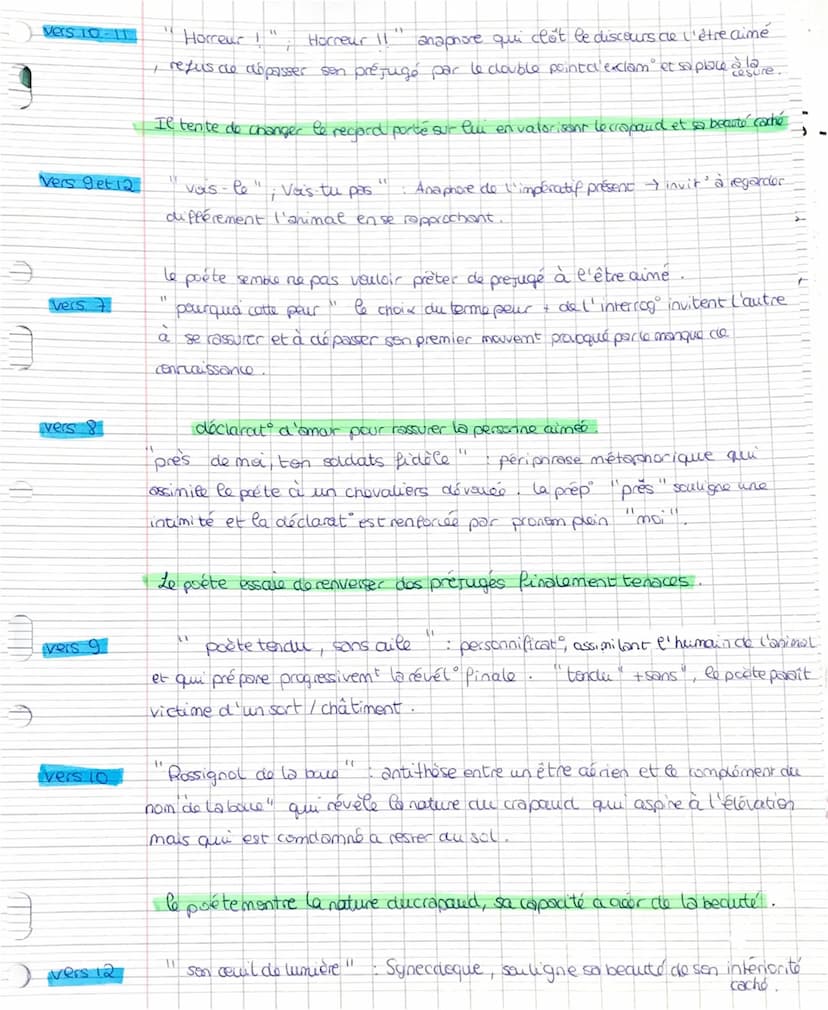 vers 10-11 "Horreur !" ; Horreur !!" anaphore qui clôt le discours de l'être aimé
, refus de dépasser son préjugé par le double point d'exclam° et sa place à la césure.
Il tente de changer le regard porté sur lui en valorisant le crapaud et sa beauté caché
vers 9 et 12 "vois-le" ; Vois-tu pas" : Anaphore de l'impératif présent → invit° à regarder
différemment l'animal en se rapprochant.
le poète semble ne pas vouloir prêter de prejugé à l'être aimé.
vers 7 "pourquoi cette peur" le choix du terme peur + de l'interrog° invitent l'autre
à se rassurer et à dépasser son premier mouvent provoqué par le manque de
connaissance.
vers 8 déclarat° d'amour pour rassurer la personne aimée.
"près de moi, ton soldats fidèle" : périphrase métaphorique qui
assimile le poète à un chevaliers dévouée. la prép° "près" souligne une
intimité et la déclarat° est renforcée par pronom plein "moi".
Le poète essaie de renverser des préjugés finalement tenaces.
vers 9 "poète tendu, sans aile" : personnificat°, assimilant l'humain de l'animal
et qui prépare progressivemt la révél° finale. "tendu" + sans", le poète paraît
victime d'un sort / châtiment.
vers 10 "Rossignol de la boue" : antithèse entre un être aérien et le complément du
nom "de la boue" qui révèle la nature du crapaud qui aspire à l'élévation
mais qui est comdamné a rester au sol.
le poète montre la nature du crapaud, sa capacité a créer de la beauté.
vers 12 "son œuil de lumière" : Synecdoque, souligne sa beauté de son intériorité
caché.